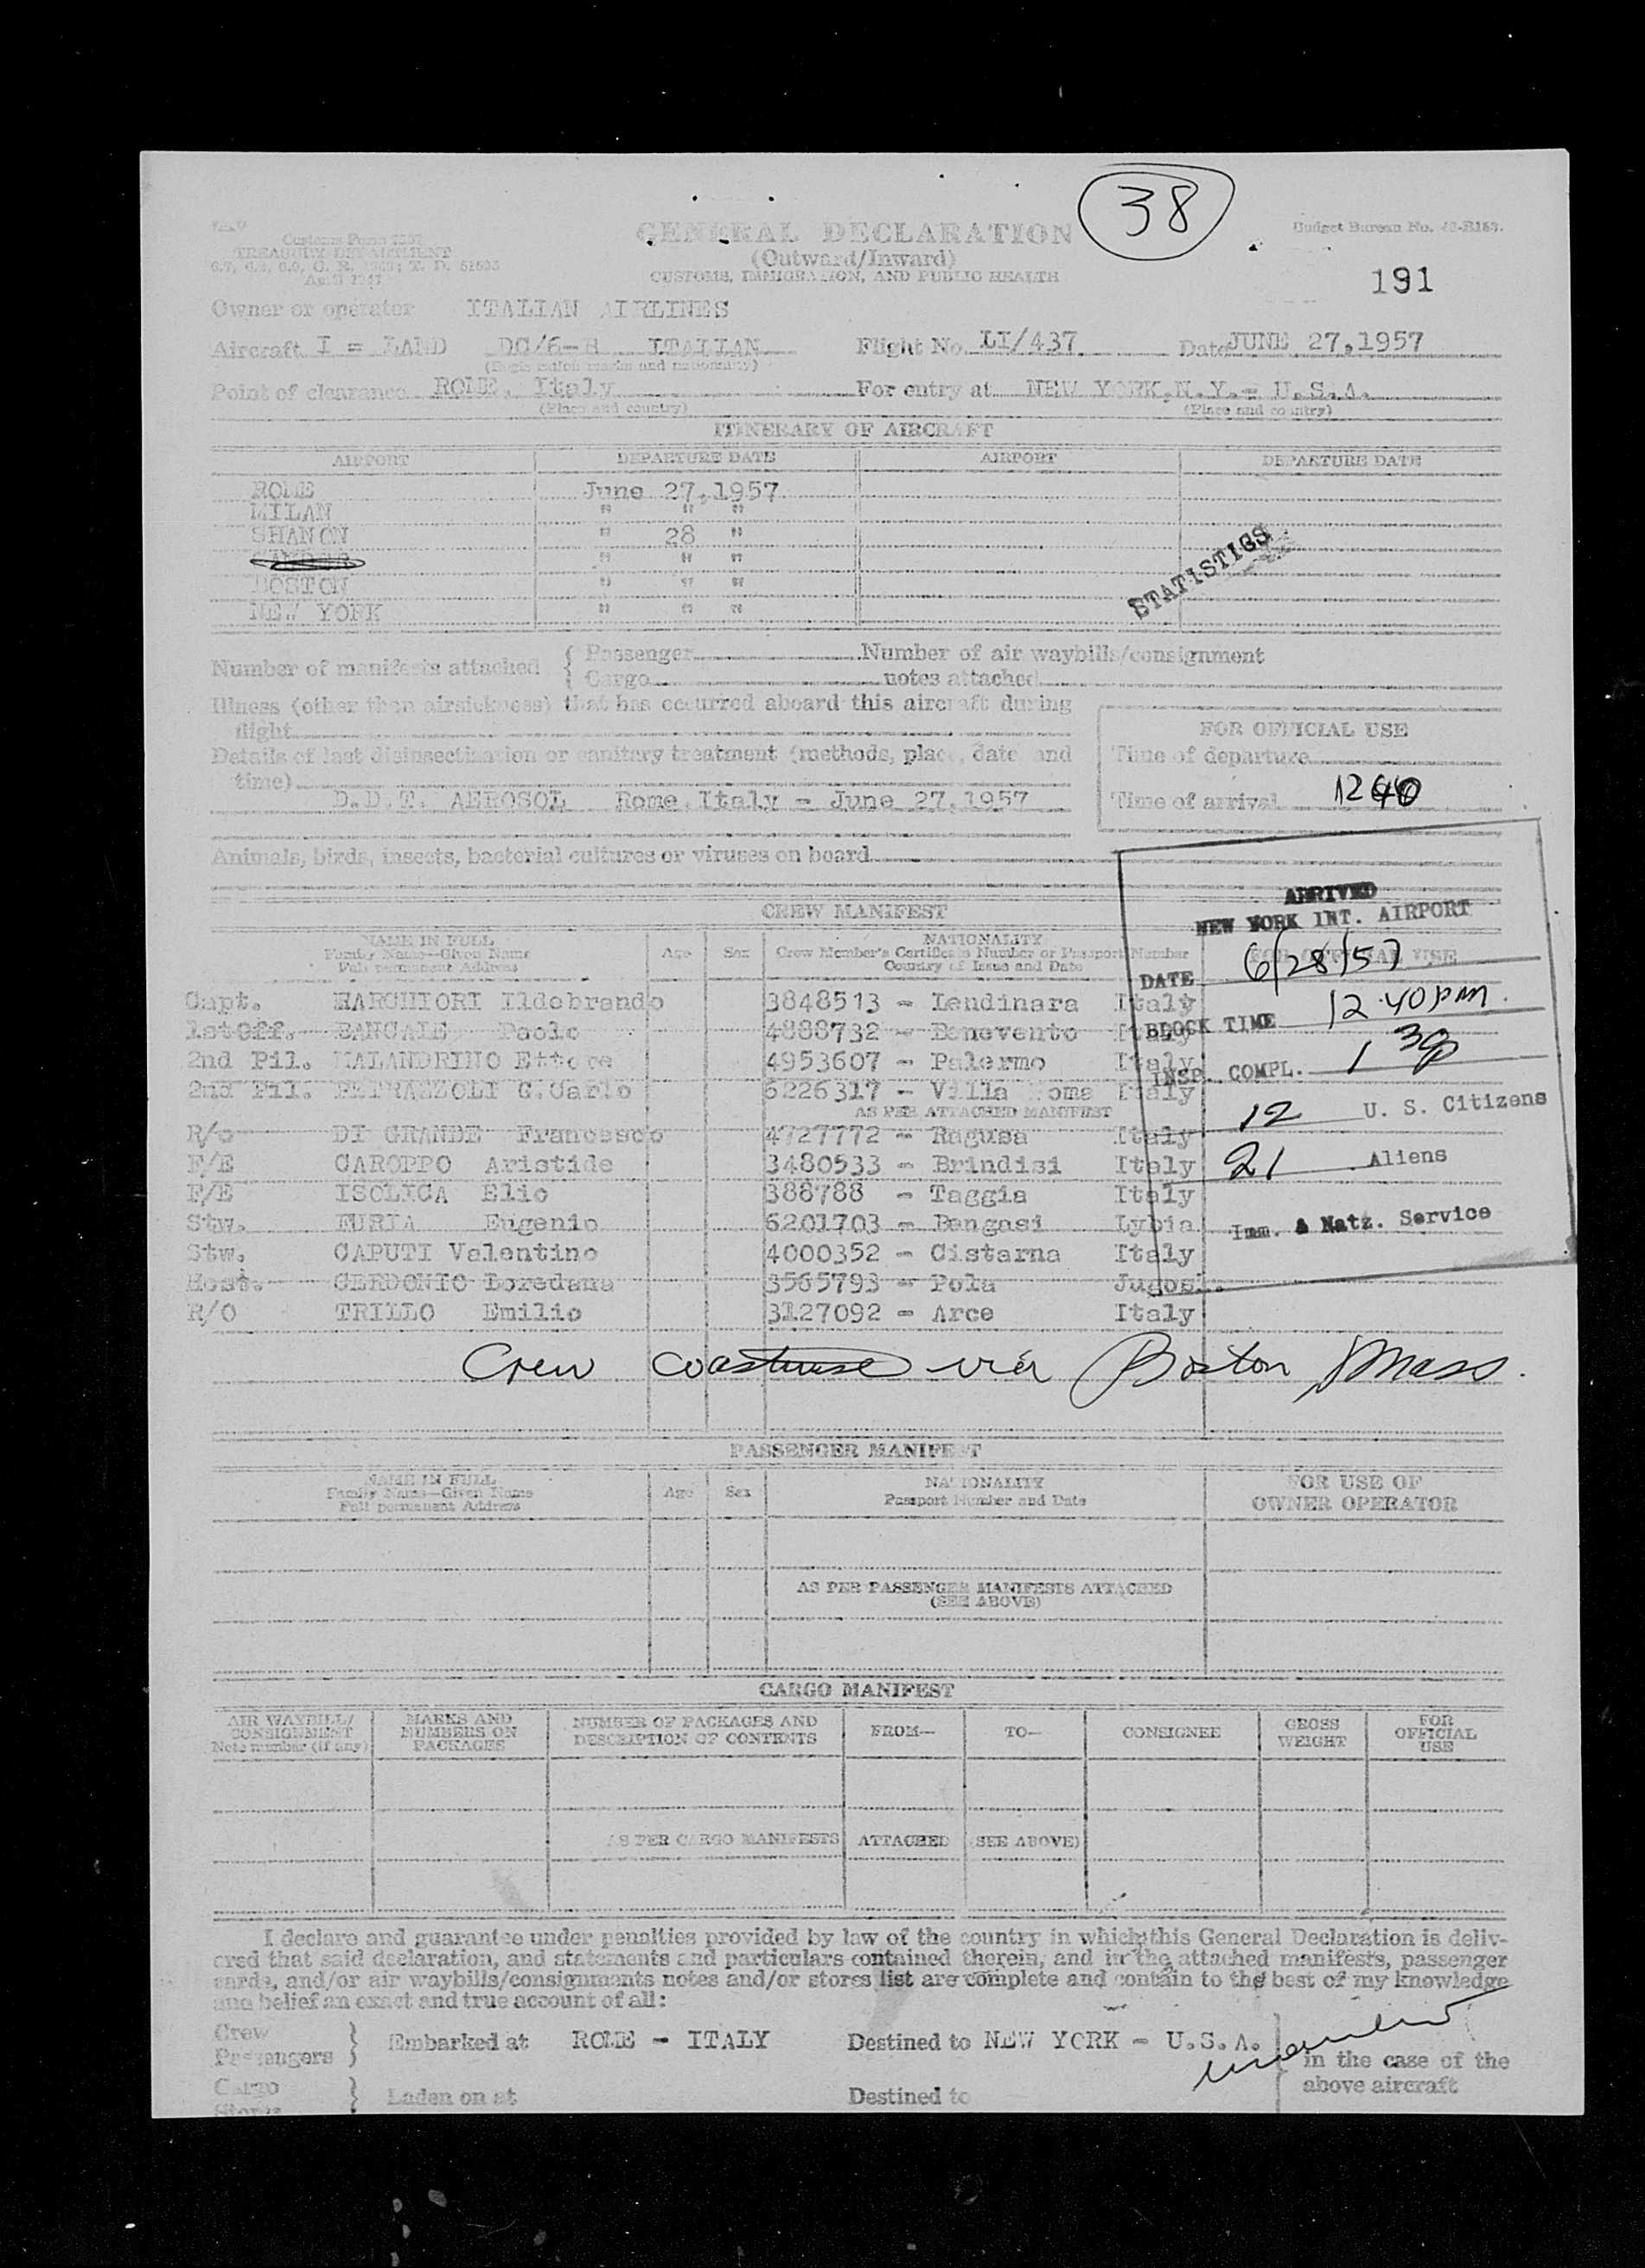 38
Customs Form
TREASURY DEPARTMENT
April 1947
GENERAL DECLARATION
(Outward/Inward)
CUSTOMS, IMMIGRATION, AND PUBLIC HEALTH
Budget Bureau No.
191
Owner or operator ITALIAN AIRLINES
Aircraft I = LAND DC/6-B ITALIAN Flight No. LI/437 Date JUNE 27,1957
(Registration marks and nationality)
Point of clearance ROME, Italy For entry at NEW YORK,N.Y.= U.S.A.
(Place and country) (Place and country)
ITINERARY OF AIRCRAFT
AIRPORT DEPARTURE DATE AIRPORT DEPARTURE DATE
ROME June 27,1957
MILAN " " "
SHANON " 28 "
" " "
BOSTON " " "
NEW YORK " " "
STATISTICS
Number of manifests attached { Passenger Number of air waybills/consignment
Cargo notes attached
Illness (other than airsickness) that has occurred aboard this aircraft during
flight
Details of last disinsectization or sanitary treatment (methods, place, date and
time)
D.D.T. AEROSOL Rome,Italy - June 27,1957
FOR OFFICIAL USE
Time of departure
Time of arrival 1240
Animals, birds, insects, bacterial cultures or viruses on board
ARRIVED
NEW YORK INT. AIRPORT
DATE 6/28/57
BLOCK TIME 12:40 pm.
INSP. COMPL. 1 30p
12 U. S. Citizens
21 Aliens
Imm. & Natz. Service
CREW MANIFEST
NAME IN FULL
Family Name—Given Name
Full permanent Address
Age Sex
NATIONALITY
Crew Member's Certificate Number or Passport Number
Country of Issue and Date
FOR OFFICIAL USE
Capt. MARCHIORI Ildebrando 3848513 - Lendinara Italy
1stOff. BANCALE Paolo 4888732 - Benevento Italy
2nd Pil. MALANDRINO Ettore 4953607 - Palermo Italy
2nd Pil. PETRAZZOLI G.Carlo 6226317 - Villa Poma Italy
AS PER ATTACHED MANIFEST
R/o DI GRANDE Francesco 4727772 - Ragusa Italy
F/E CAROPPO Aristide 3480533 - Brindisi Italy
F/E ISOLICA Elio 388788 - Taggia Italy
Stw. FURIA Eugenio 6201703 - Bengasi Lybia
Stw. CAPUTI Valentino 4000352 - Cistarna Italy
Host. CERDONIO Loredana 3565793 - Pola Jugosl.
R/O TRILLO Emilio 3127092 - Arce Italy
Crew coastwise via Boston Mass.
PASSENGER MANIFEST
NAME IN FULL
Family Name—Given Name
Full permanent Address
Age Sex
NATIONALITY
Passport Number and Date
FOR USE OF
OWNER OPERATOR
AS PER PASSENGER MANIFESTS ATTACHED
(SEE ABOVE)
CARGO MANIFEST
AIR WAYBILL/
CONSIGNMENT
Note number (if any)
MARKS AND
NUMBERS ON
PACKAGES
NUMBER OF PACKAGES AND
DESCRIPTION OF CONTENTS
FROM—
TO—
CONSIGNEE
GROSS
WEIGHT
FOR
OFFICIAL
USE
AS PER CARGO MANIFESTS ATTACHED (SEE ABOVE)
I declare and guarantee under penalties provided by law of the country in which this General Declaration is deliv-
ered that said declaration, and statements and particulars contained therein, and in the attached manifests, passenger
cards, and/or air waybills/consignments notes and/or stores list are complete and contain to the best of my knowledge
and belief an exact and true account of all:
Crew
Passengers } Embarked at ROME - ITALY Destined to NEW YORK - U.S.A.
in the case of the
above aircraft
Cargo
Stores } Laden on at Destined to